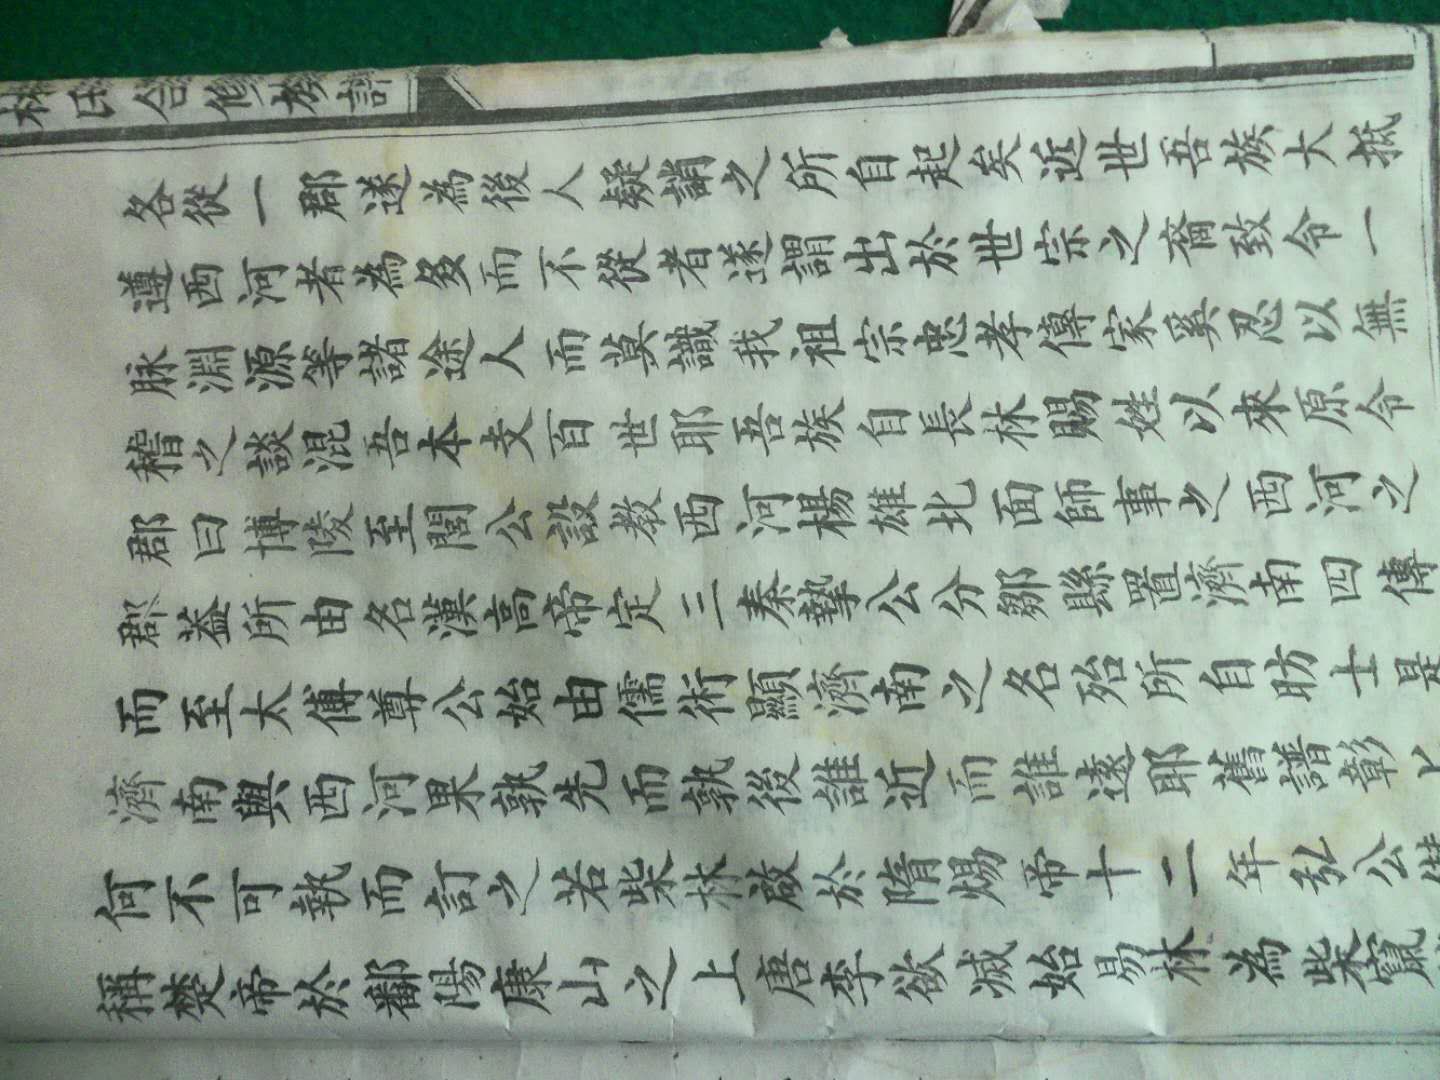 林氏合修族譜
各從一郡遂為後人疑誚之所自起矣近世吾族大抵
遵西河者為多而不從者遂謂出於世宗之裔致令一
脉淵源等諸途人而莫識我祖宗忠孝傳家奚忍以無
稽之談混吾本支百世耶吾族自長林賜姓以來原令
郡曰博陵至閭公設教西河楊雄北面師事之西河之
郡葢所由名漢高帝定三秦摯公分鄒縣置濟南四傳
而至太傅尊公始由儒術顯濟南之名殆所自昉士是
濟南與西河果孰先而孰後誰近而誰遠耶舊譜彰
何不可執而訂之若柴林啟於隋煬帝十二年弘公
稱楚帝於鄱陽康山之上唐李欲滅始易林為柴竄